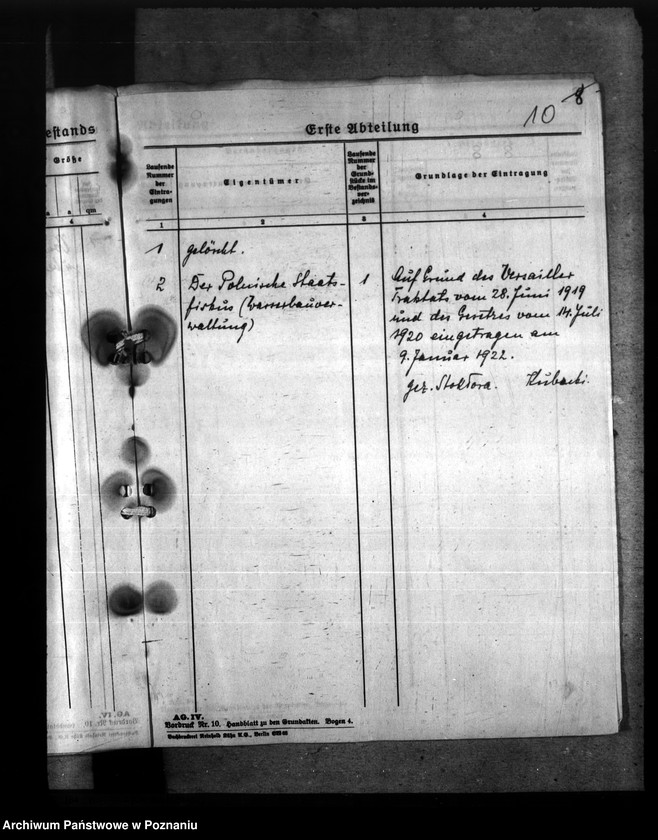 estands
Größe
a qm
4
10 8
Erste Abteilung
Laufende
Nummer
der
Eintra-
gungen
Eigentümer
Laufende
Nummer
der
Grund-
stücke im
Bestands-
ver-
zeichnis
Grundlage der Eintragung
1 2 3 4
1 gelöscht.
2 Der Polnische Staats-
fiskus (Wasserbauver-
waltung)
1 Auf Grund des Versailler
Traktats vom 28. Juni 1919
und des Gesetzes vom 14. Juli
1920 eingetragen am
9. Januar 1922.
gez. Stoktora. Kubacki.
AG. IV.
Vordruck Nr. 10. Handblatt zu den Grundakten. Bogen 4.
Buchdruckerei Reinhold Kühn A.G., Berlin
Archiwum Państwowe w Poznaniu